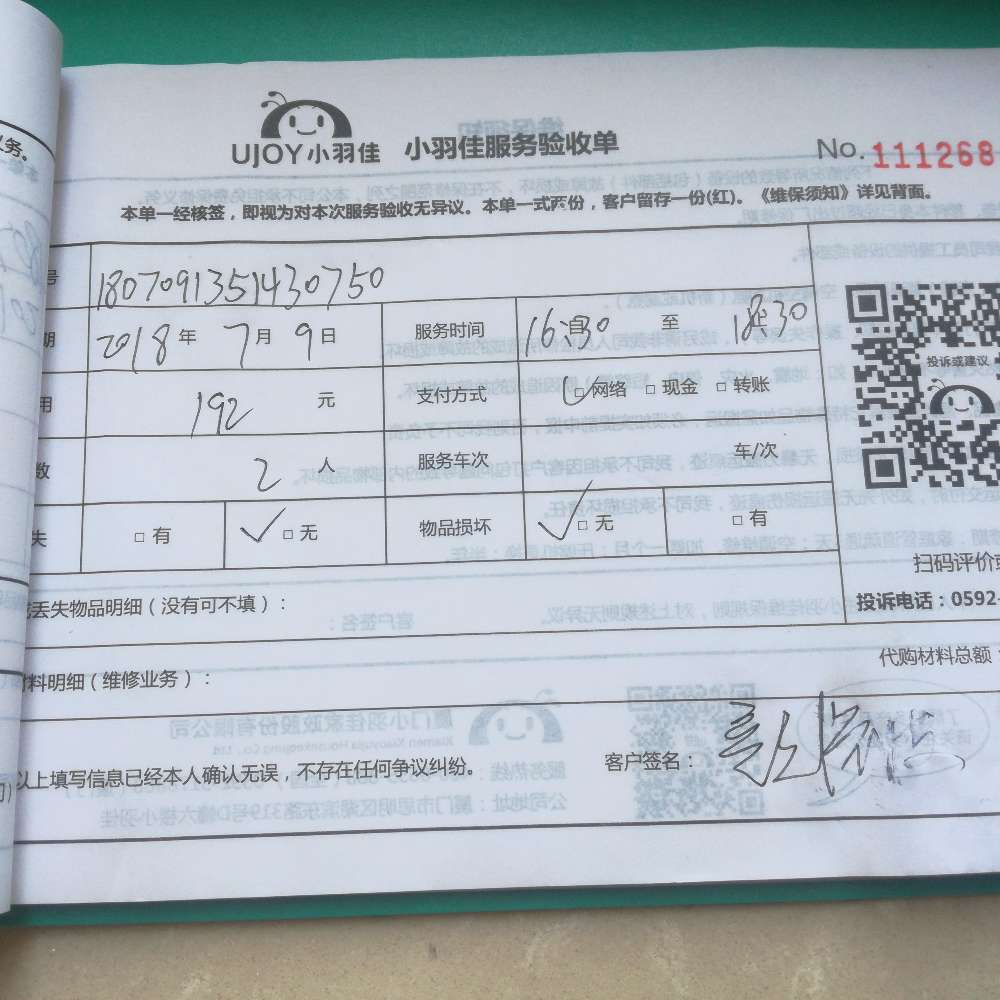 义务。
UJOY小羽佳 小羽佳服务验收单 No. 111268
本单一经核签，即视为对本次服务验收无异议。本单一式两份，客户留存一份(红)。《维保须知》详见背面。
号 1807091351430750
期 2018 年 7 月 9 日 服务时间 16:30 至 18:30
用 192 元 支付方式 ☑网络 □现金 □转账
投诉或建议
数 2 人 服务车次 车/次
失 □有 ✓□无 物品损坏 ✓□无 □有
扫码评价或
丢失物品明细（没有可不填）：
投诉电话：0592-
材料明细（维修业务）： 代购材料总额：
以上填写信息已经本人确认无误，不存在任何争议纠纷。 客户签名：